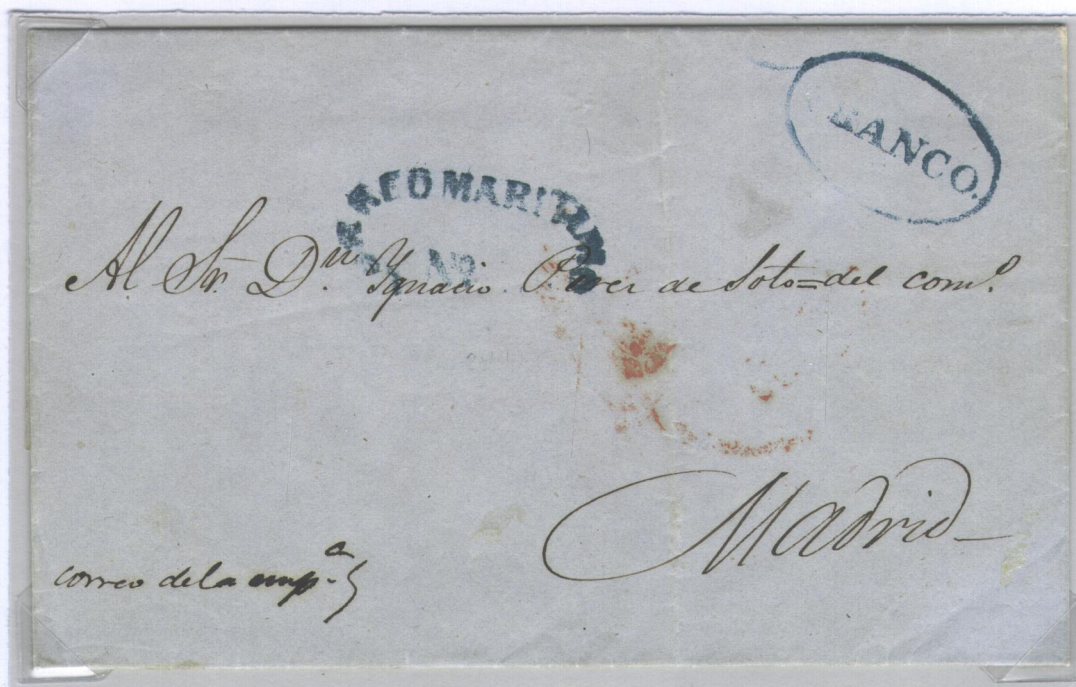 BANCO.
MARITIMO
Al Sr. Dn. Ygnacio de Soto=del com.º
Madrid
correo de la emp.ª